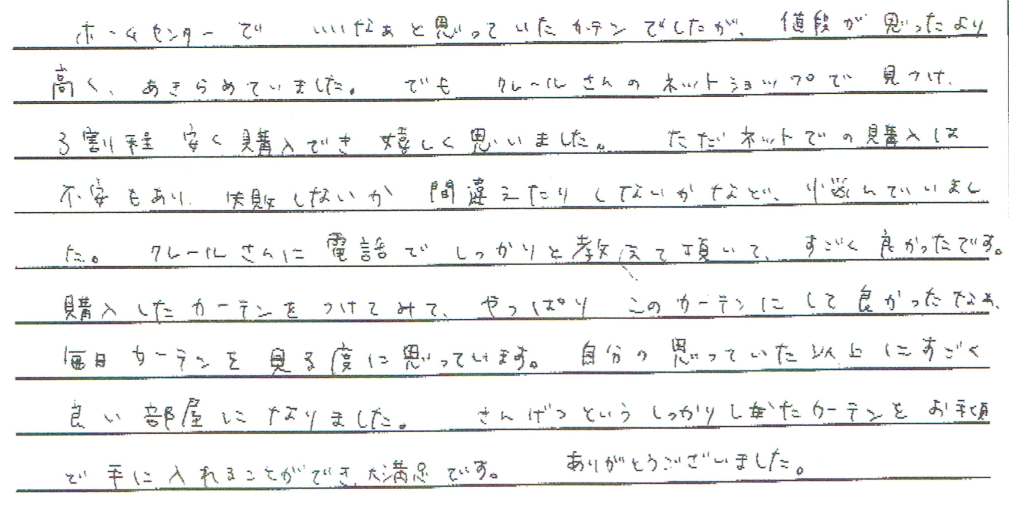 ホームセンターで いいなぁと思っていたカーテンでしたが、値段が思ったより
高く、あきらめていました。でも クレールさんのネットショップで見つけ、
3割程 安く購入でき嬉しく思いました。ただネットでの購入は
不安もあり、失敗しないか 間違えたりしないかなど、小悩んでいまし
た。クレールさんに電話でしっかりと教えて頂いて、すごく良かったです。
購入したカーテンをつけてみて、やっぱり このカーテンにして良かったなぁ、
毎日カーテンを見る度に思っています。自分の思っていた以上にすごく
良い部屋になりました。さんげつというしっかりしたカーテンをお手頃
で手に入れることができ大満足です。ありがとうございました。